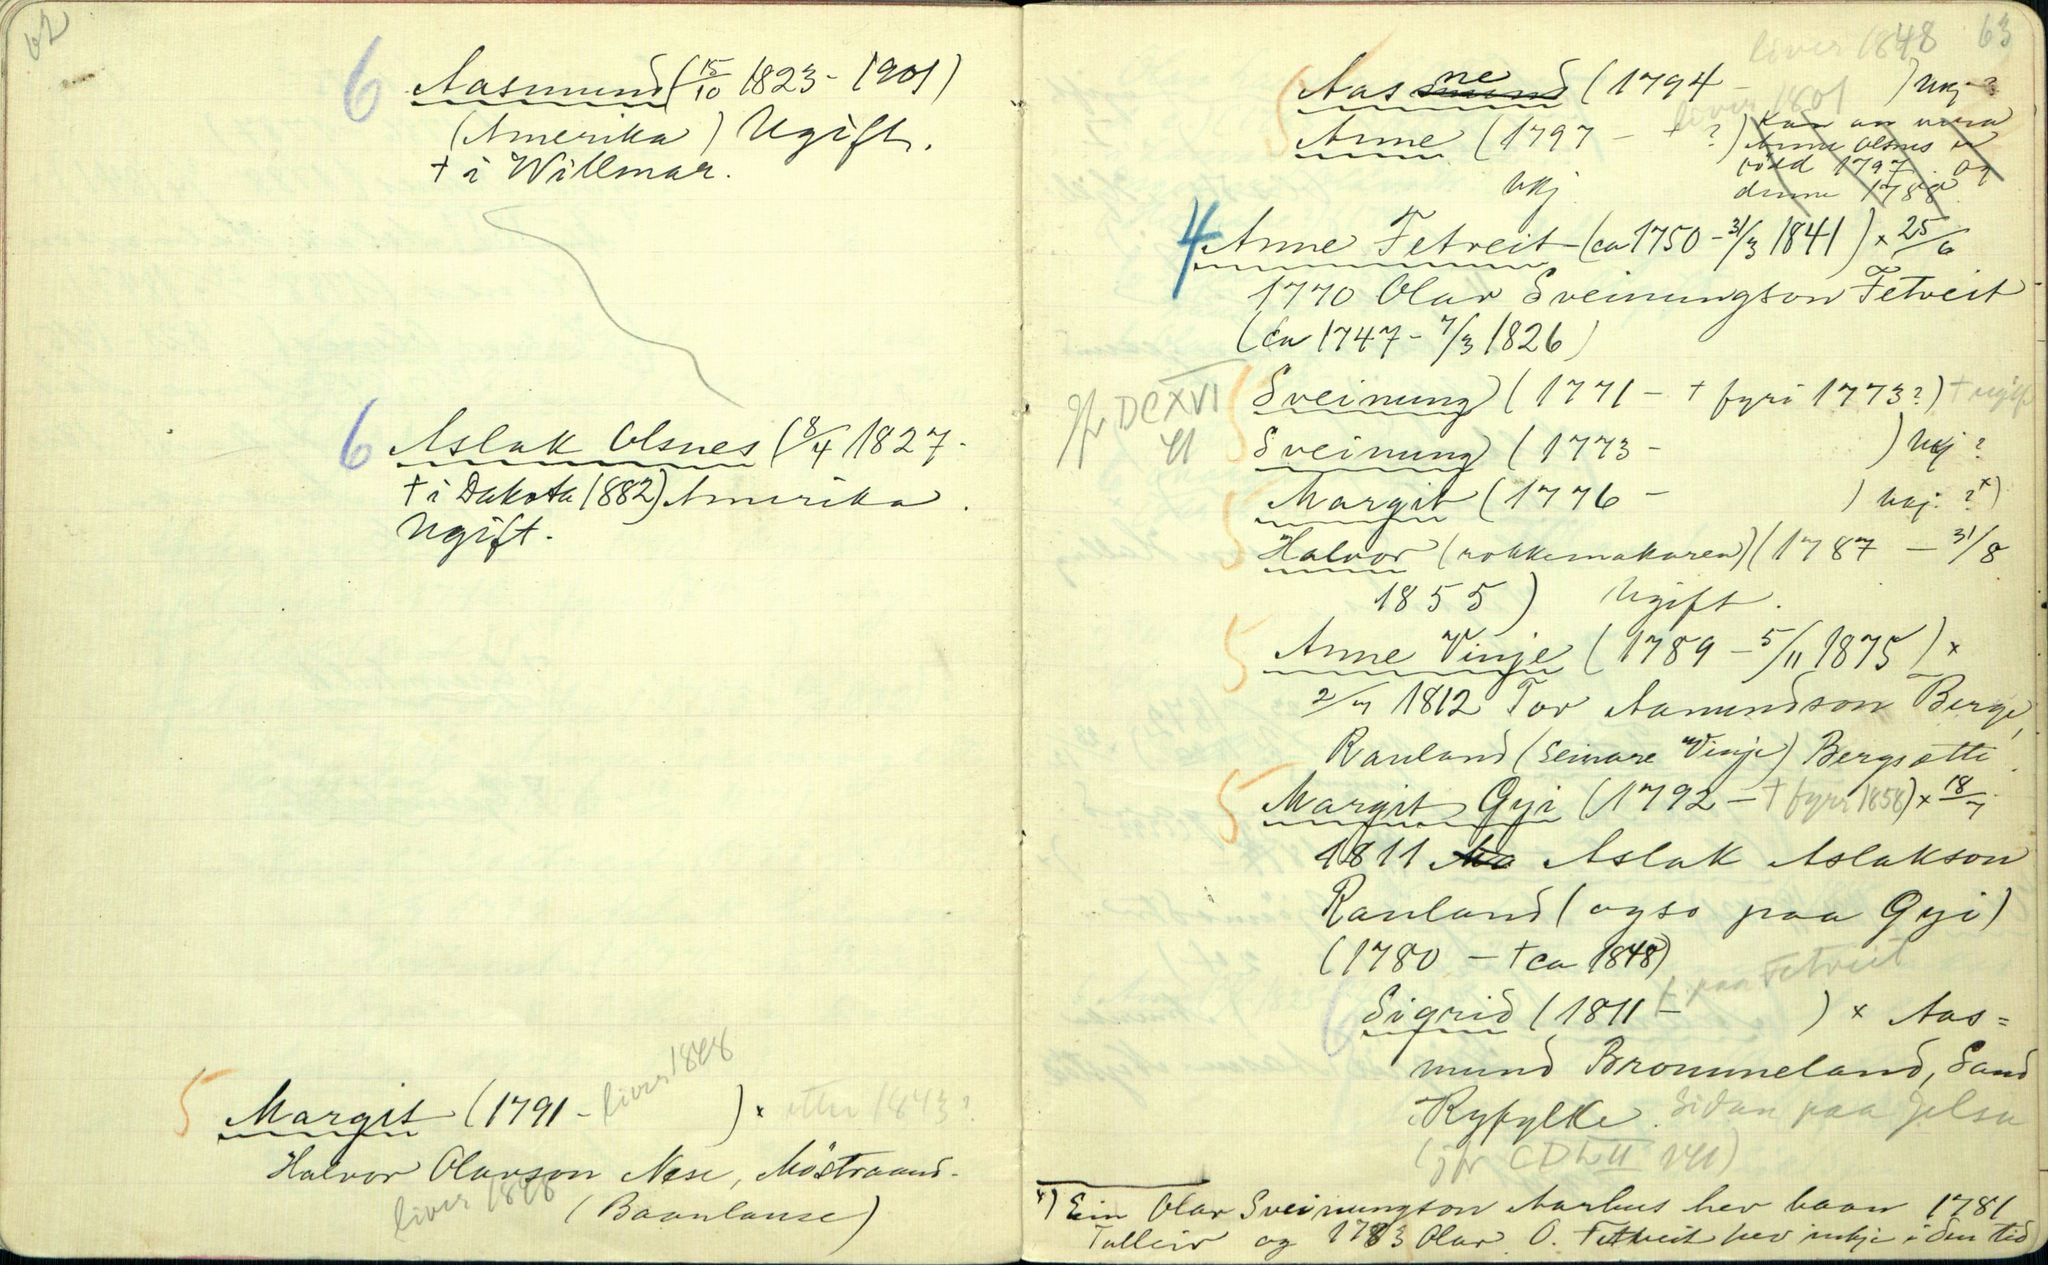 62
6 Aasmund (15/10 1823 - 1901)
(Amerika) Ugift.
† i Willmar.
6 Aslak Olsnes (8/4 1827 -
† i Dakota 1882) Amerika.
Ugift.
5 Margit (1791 - liver 1848 ) × etter 1843?
Halvor Olavson Nese, Möstraand.
liver 1848 (Baanlause)
63
liver 1848
5 Aasne (1794 - ) ukj ?
liver 1801
Anne (1797 - † ?) Kan an vera
Anne Olsnes er
född 1797. og
denne 1788.
ukj
4 Anne Fetveit (ca 1750 - 31/3 1841) × 25/6
1770 Olav Sveinungson Fetveit
(ca 1747 - 7/3 1826)
jfr DCXVI 41
5 Sveinung (1771 - † fyri 1773?) † ugift
5 Sveinung (1773 - ) ukj ?
5 Margit (1776 - ) ukj. ? ×)
5 Halvor (rokkemakaren) (1787 - 31/8
1855) Ugift.
5 Anne Vinje (1789 - 5/11 1875) ×
1812 Tov Aamundson Berge,
Rauland (seinare Vinje) Bergsætti.
5 Margit Gyi (1792 - † fyri 1858) × 18/7
1811 Aslak Aslakson
Rauland (ogso paa Gyi)
(1780 - † ca 1848)
f. paa Fetveit
6 Sigrid (1811 - ) × Aas=
mund Brommeland, Sand
Ryfylke. Sidan paa Jelsa
(jfr CDLII 141)
×) Ein Olav Sveinungson Aarhus hev baan 1781
Talleiv og 1783 Olav. O. Fetveit hev inkje i den tid